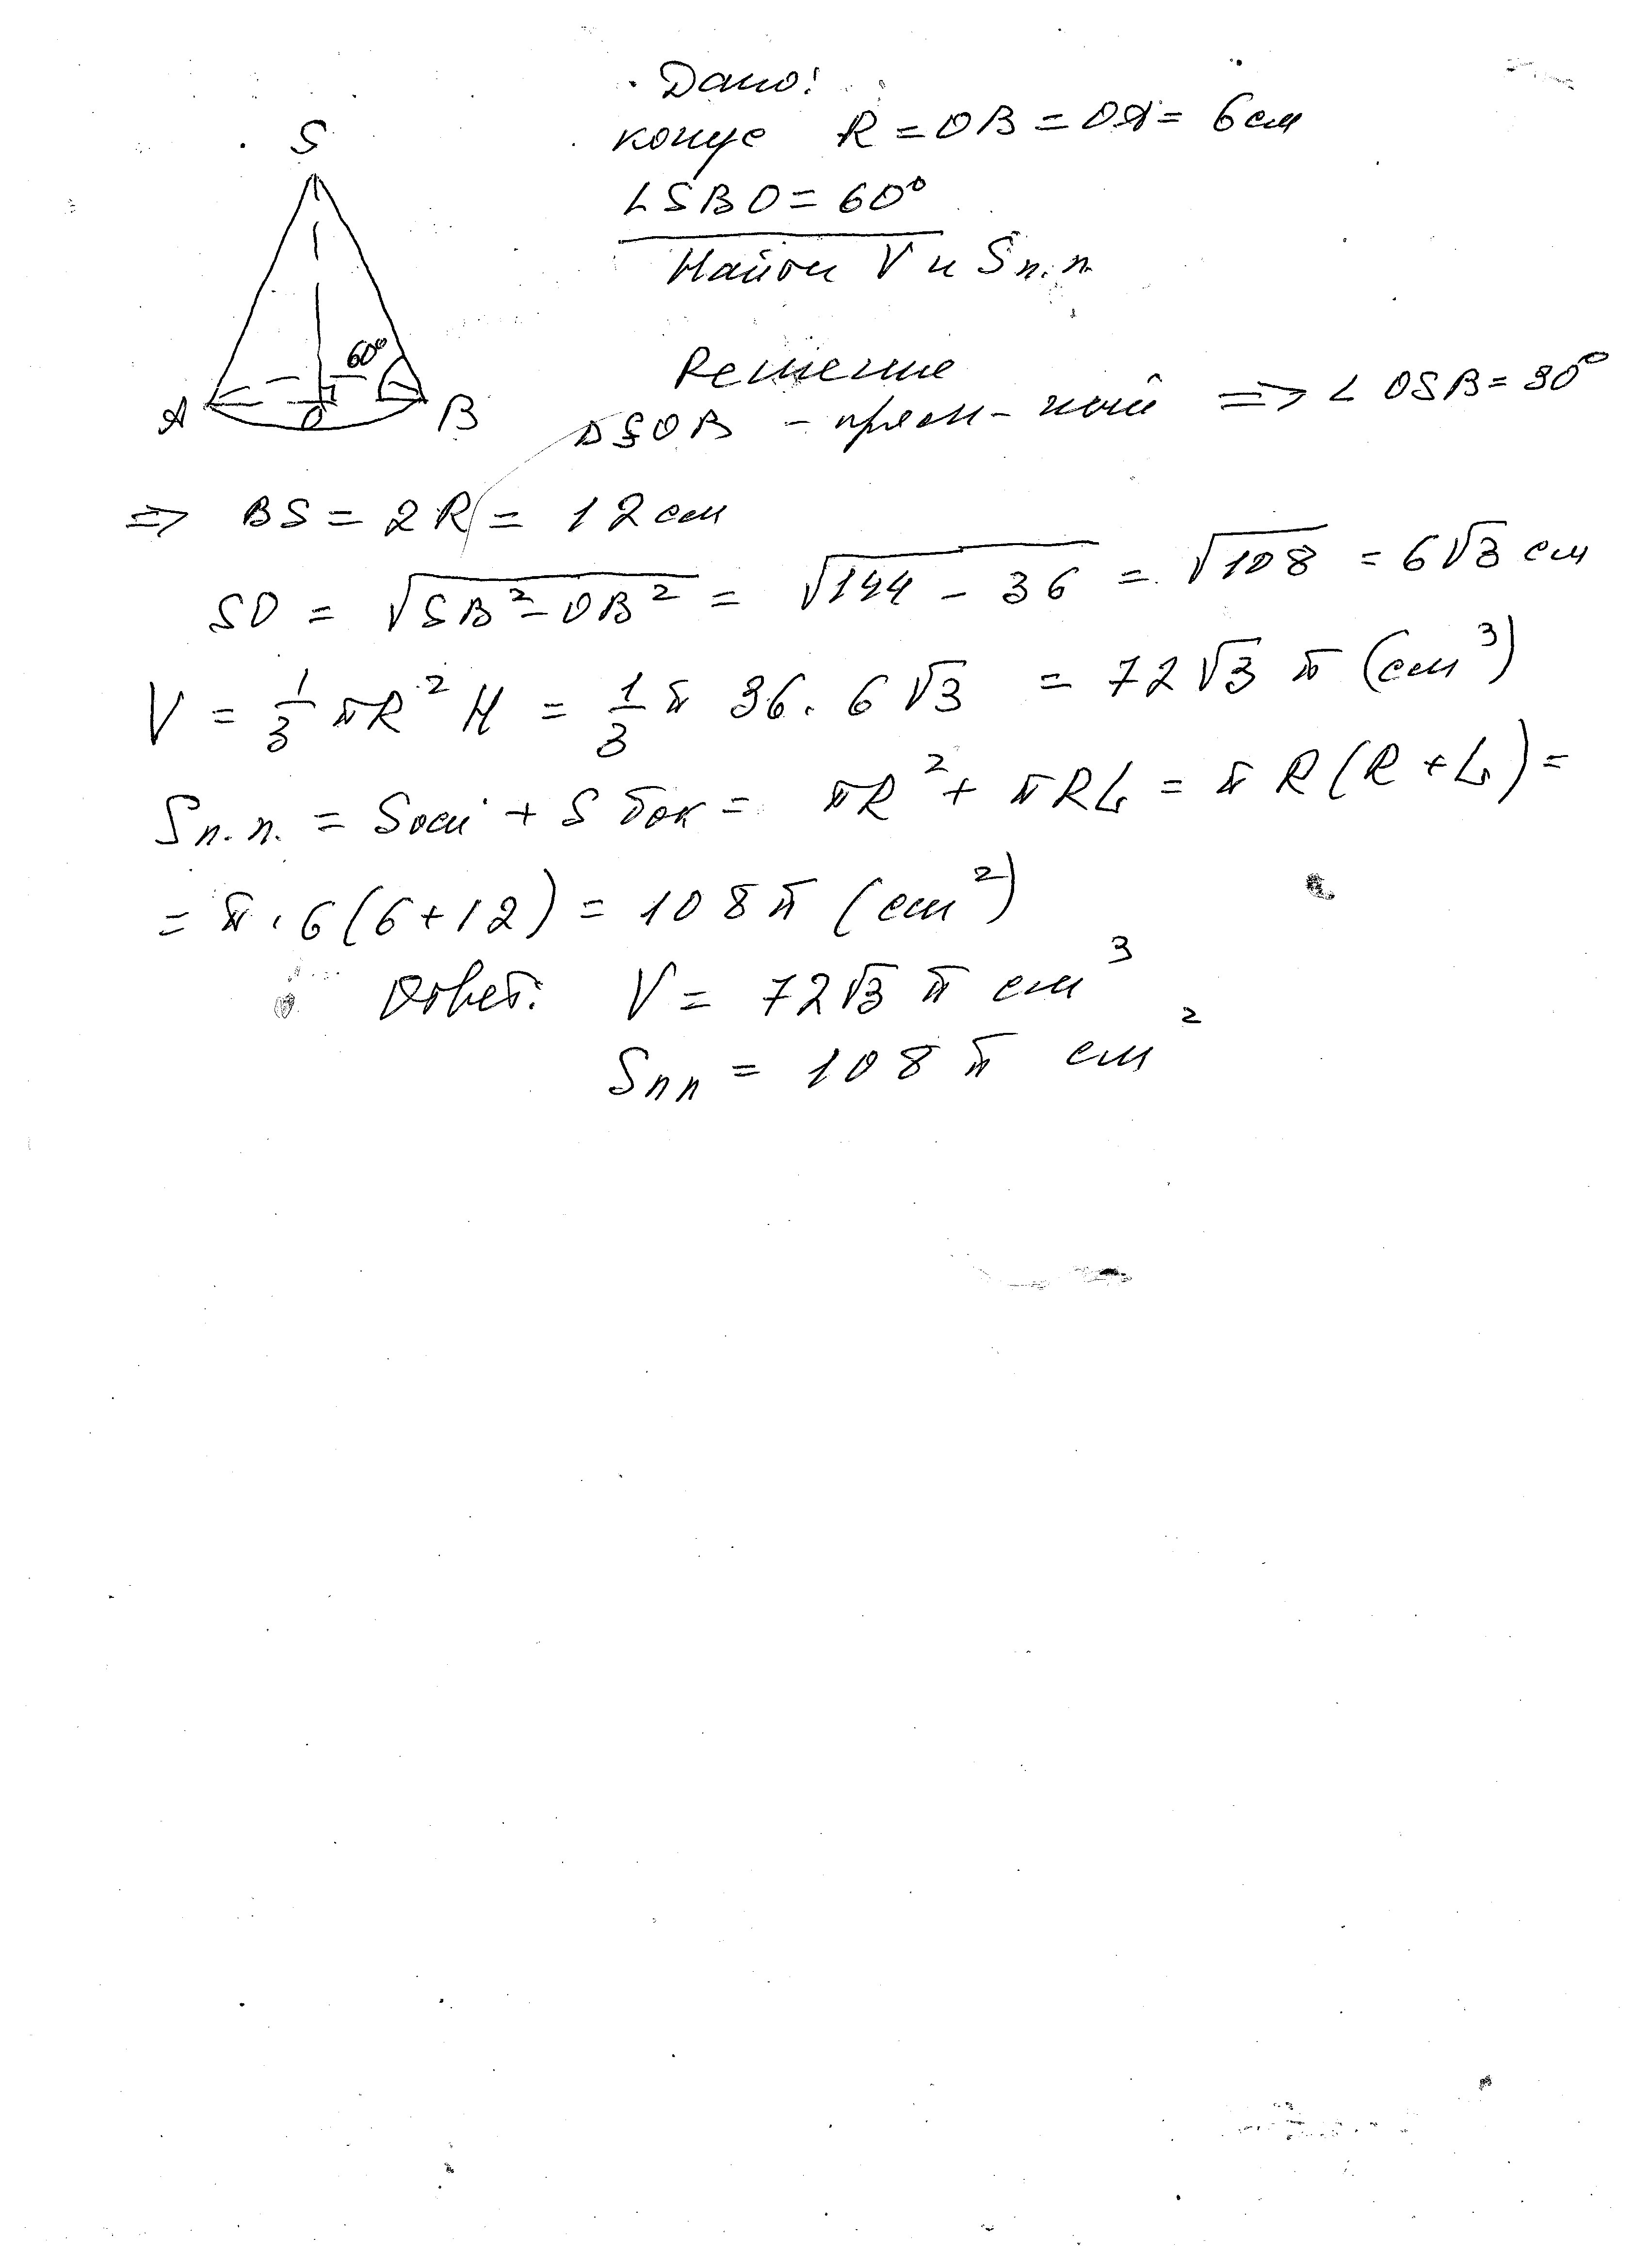 Дано:
конус R = OB = OA = 6 см
∠SBO = 60°
Найти V и Sп.п.
S
60°
A
O
B
Решение
△SOB – прям-ный ⇒ ∠OSB = 30°
⇒ BS = 2R = 12 см
SO = √(SB² – OB²) = √(144 – 36) = √108 = 6√3 см
V = 1/3 πR² H = 1/3 π 36 · 6√3 = 72√3 π (см³)
Sп.п. = Sосн + Sбок = πR² + πRL = πR(R + L) =
= π · 6(6 + 12) = 108π (см²)
Ответ: V = 72√3 π см³
Sпп = 108 π см²